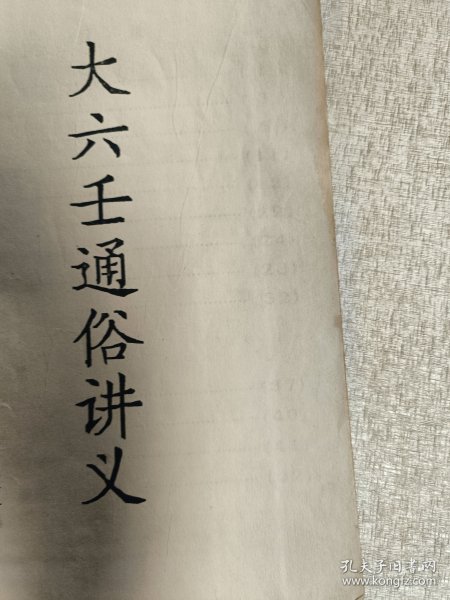 大六壬通俗讲义
孔夫子旧书网
www.kongfz.com